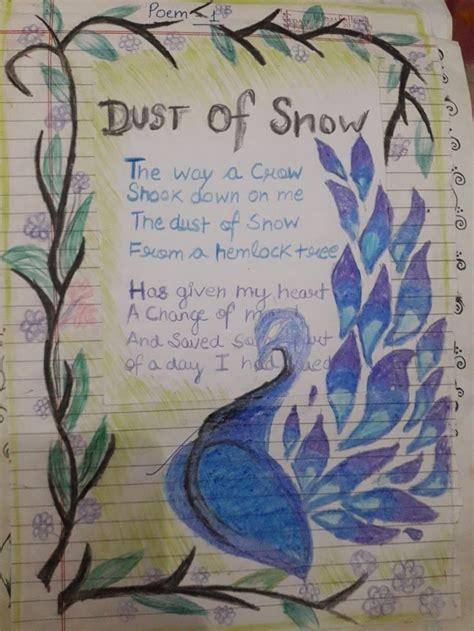 Poem - 1
DUST OF SNOW
The way a Crow
Shook down on me
The dust of Snow
From a hemlock tree
Has given my heart
A Change of
And Saved
of a day I had